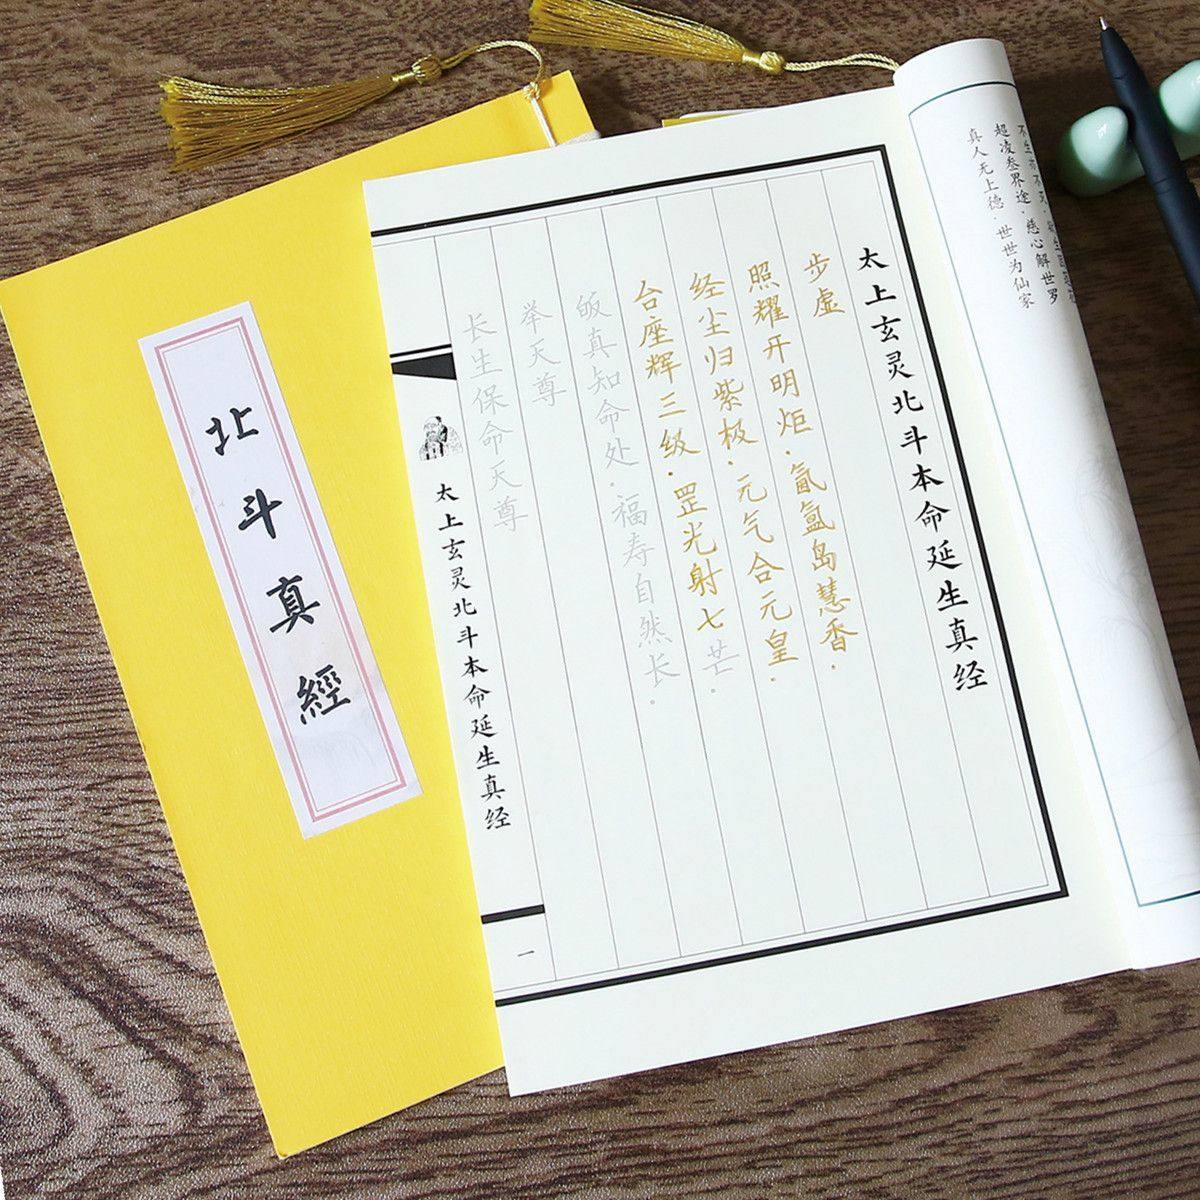 北斗真經
不生亦不灭
超凌叁界途·慈心解世罗
真人无上德·世世为仙家
太上玄灵北斗本命延生真经
步虚
照耀开明炬·氤氲岛慧香·
经尘归紫极·元气合元皇·
台座辉三级·罡光射七芒·
皈真知命处·福寿自然长·
举天尊
长生保命天尊
太上玄灵北斗本命延生真经
一